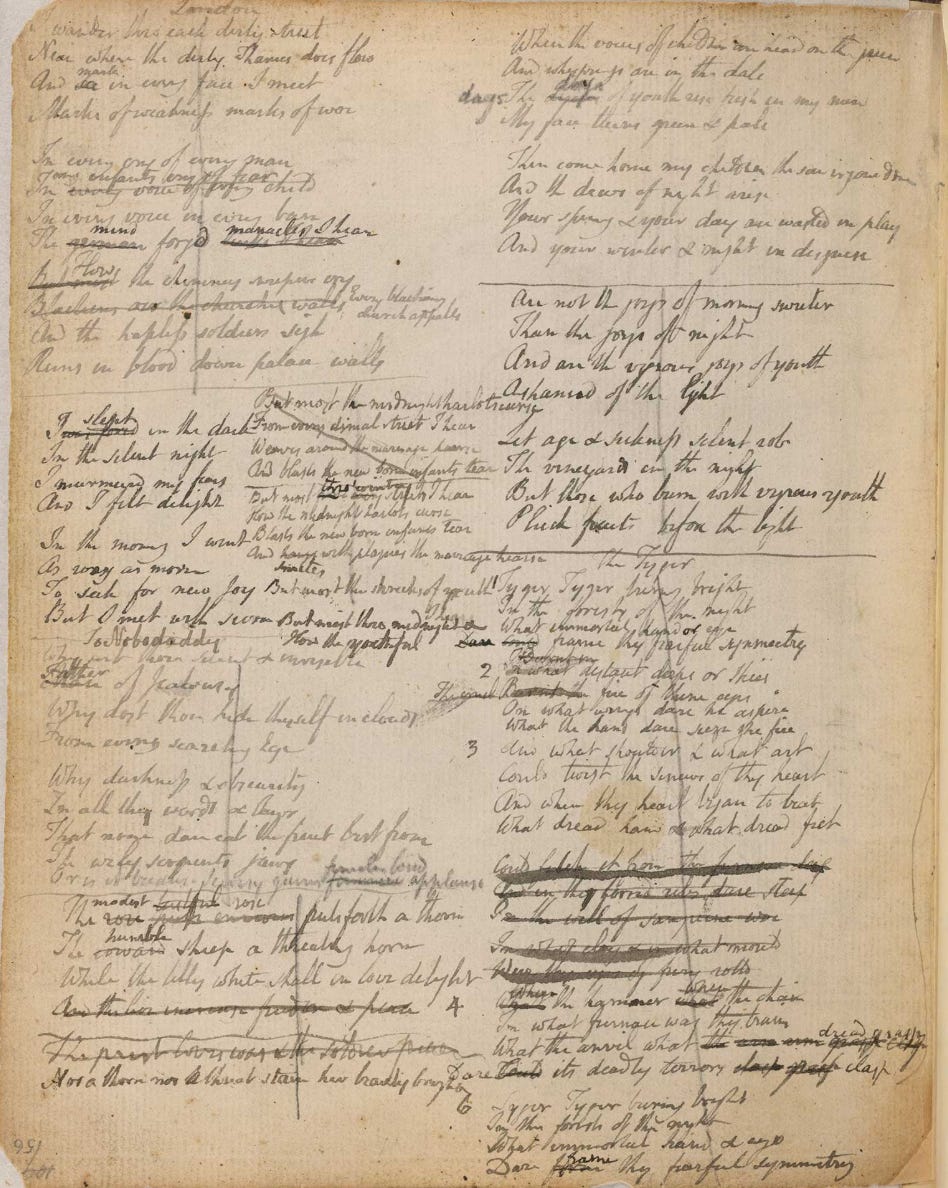 London
I wander thro each dirty street
Near where the dirty Thames does flow
And see mark in every face I meet
Marks of weakness marks of woe
In every cry of every man
In every infants cry of fear
In every voice of every child
In every voice in every ban
The german mind forgd links I hear manacles I hear
But most How the chimney sweepers cry
Blackens oer the churches walls Every blackning
church appalls
And the hapless soldiers sigh
Runs in blood down palace walls
But most the midnight harlots curse
From every dismal street I hear
Weaves around the marriage hearse
And blasts the new born infants tear
But most thro wintry streets I hear
How the midnight harlots curse
Blasts the new born infants tear
And hangs smites with plagues the marriage hearse
But most the shrieks of youth I hear
But most thro midnight &c
How the youthful
I slept in the dark
In the silent night
I murmured my fears
And I felt delight
In the morning I went
As rosy as morn
To seek for new Joy
But I met with scorn
To Nobodaddy
Why art thou silent & invisible
Father of Jealousy
Why dost thou hide thyself in clouds
From every searching Eye
Why darkness & obscurity
In all thy words & laws
That none dare eat the fruit but from
The wily serpents jaws
Or is it because Secresy gains females loud applause
The modest rose puts forth a thorn
The coward humble sheep a threatning horn
While the lilly white shall in love delight
And the lion increase freedom & peace
The priest loves war & the soldier peace
Nor a thorn nor a threat stain her beauty bright
When the voices of children are heard on the green
And whisprings are in the dale
days The days of youth rise fresh in my mind
My face turns green & pale
Then come home my children the sun is gone down
And the dews of night arise
Your spring & your day are wasted in play
And your winter & night in disguise
Are not the joys of morning sweeter
Than the joys of night
And are the vigrous joys of youth
Ashamed of the light
Let age & sickness silent rob
The vineyards in the night
But those who burn with vigrous youth
Pluck fruits before the light
The Tyger
Tyger Tyger burning bright
In the forests of the night
What immortal hand or eye
Dare Could frame thy fearful symmetry
Burnt in
2 In what distant deeps or skies
The cruel Burnt the fire of thine eyes
On what wings dare he aspire
What the hand dare sieze the fire
3 And what shoulder & what art
Could twist the sinews of thy heart
And when thy heart began to beat
What dread hand & what dread feet
Could fetch it from the furnace deep
And in thy horrid ribs dare steep
In the well of sanguine woe
In what clay & in what mould
Were thy eyes of fury rolld
4 Where the hammer where the chain
In what furnace was thy brain
What the anvil what the arm arm grasp clasp dread grasp
Dare Could its deadly terrors clasp grasp clasp
6 Tyger Tyger burning bright
In the forests of the night
What immortal hand & eye
Dare form frame thy fearful symmetry
156